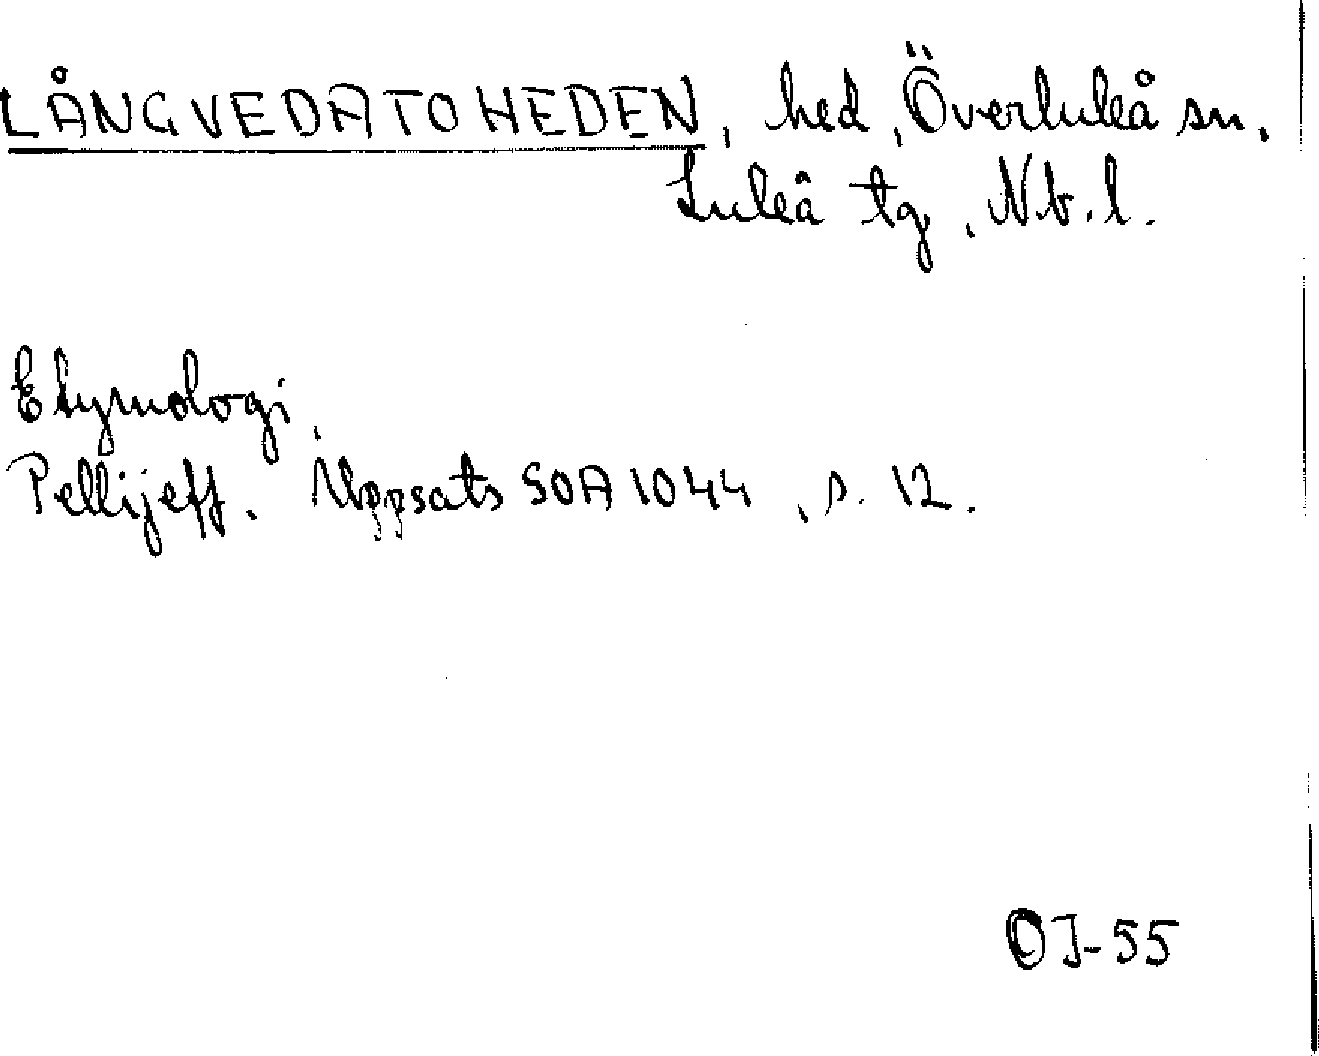 LÅNGVEDATOHEDEN, hed, Överluleå sn,
Luleå tg, Nb.l.
Etymologi,
Pellijeff. Uppsats SOA 1044, s. 12.
OJ-55